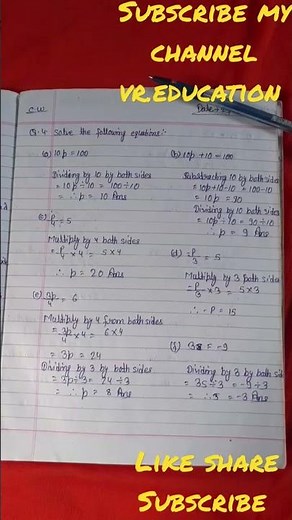 Subscribe my
channel
vr.education
C.W
Q.4 Solve the following equations:-
(a) 10p = 100
Dividing by 10 by both sides
= 10p ÷ 10 = 100 ÷ 10
= ∴ p = 10 Ans
(b) 10p + 10 = 100
Substracting 10 by both sides
= 10p + 10 - 10 = 100 - 10
= 10p = 90
Dividing 10 by both sides
= 10p ÷ 10 = 90 ÷ 10
∴ p = 9 Ans
(c) p/4 = 5
Multiply by 4 both sides
= p/4 × 4 = 5 × 4
∴ p = 20 Ans
(d) -p/3 = 5
Multiply by 3 both sides
= -p/3 × 3 = 5 × 3
∴ -p = 15
(e) 3p/4 = 6
Multiply by 4 from both sides
= 3p/4 × 4 = 6 × 4
= 3p = 24
Dividing by 3 by both sides
= 3p ÷ 3 = 24 ÷ 3
= ∴ p = 8 Ans
(f) 3s = -9
Dividing by 3 by both sides
= 3s ÷ 3 = -9 ÷ 3
= ∴ s = -3 Ans
Like share
Subscribe